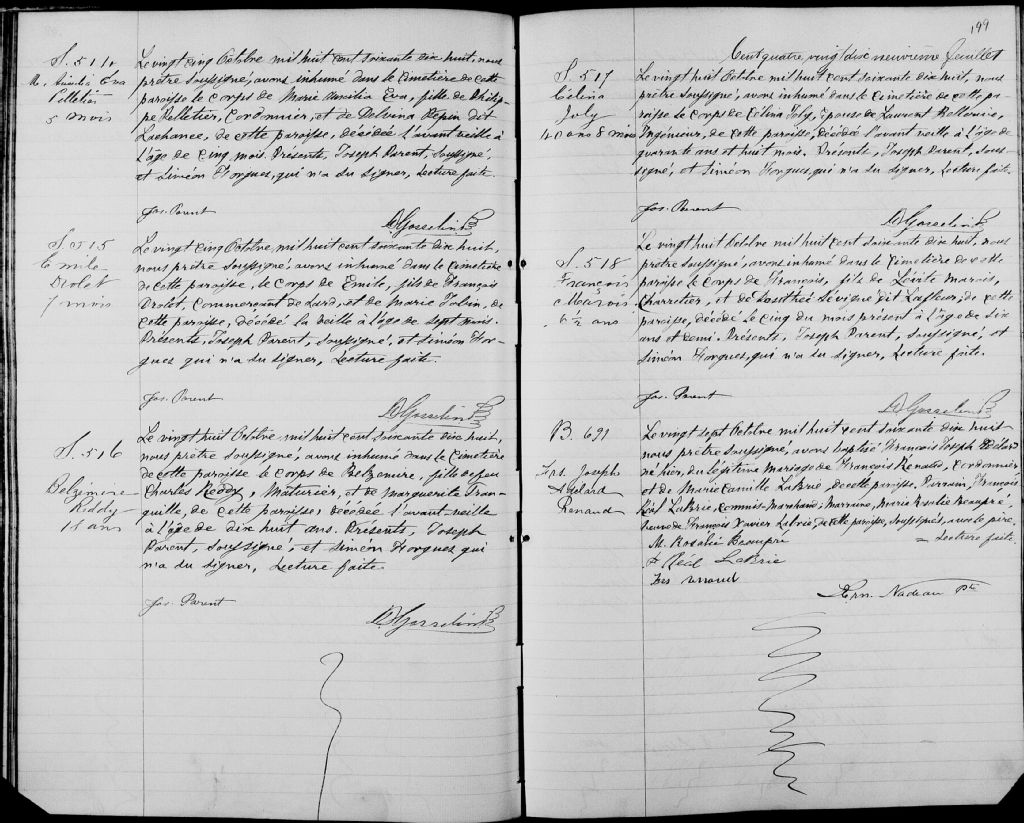 S. 514
M. Aurélie Eva
Pelletier
5 mois
Le vingt cinq Octobre mil huit cent soixante dix huit, nous
prêtre soussigné, avons inhumé dans le Cimetière de cette
paroisse le corps de Marie Aurélia Eva, fille de Philip-
pe Pelletier, Cordonnier, et de Delvina Pépin dit
Lachance, de cette paroisse, décédée l'avant veille à
l'âge de Cinq mois. Présents, Joseph Parent, soussigné,
et Siméon Forgues, qui n'a su signer, Lecture faite.
Jos. Parent
D Gosselin Ptre
S. 515
Emile
Drolet
7 mois
Le vingt cinq Octobre mil huit cent soixante dix huit,
nous prêtre soussigné, avons inhumé dans le Cimetière
de cette paroisse, le corps de Emile, fils de François
Drolet, Commerçant de Lard, et de Marie Tobin, de
cette paroisse, décédé la veille à l'âge de sept mois.
Présents, Joseph Parent, soussigné, et Siméon For-
gues qui n'a su signer, Lecture faite.
Jos. Parent
D Gosselin Ptre
S. 516
Belzémire
Reddy
18 ans
Le vingt huit Octobre mil huit cent soixante dix huit,
nous prêtre soussigné, avons inhumé dans le Cimetière
de cette paroisse le corps de Belzémire, fille de feu
Charles Reddy, Mâturier, et de Marguerite Tran-
quille, de cette paroisse, décédée l'avant-veille
à l'âge de dix huit ans. Présents, Joseph
Parent, soussigné, et Siméon Forgues qui
n'a su signer, Lecture faite.
Jos. Parent
D Gosselin Ptre
199
Cent quatre vingt dix neuvième feuillet
S. 517
Célina
Joly
40 ans 8 mois
Le vingt huit Octobre mil huit cent soixante dix huit, nous
prêtre soussigné, avons inhumé dans le Cimetière de cette pa-
roisse le corps de Célina Joly, épouse de Laurent Bellerive,
Ingénieur, de cette paroisse, décédée l'avant veille à l'âge de
quarante ans et huit mois. Présents, Joseph Parent, sous-
signé, et Siméon Forgues, qui n'a su signer, Lecture faite.
Jos. Parent
D Gosselin Ptre
S. 518
François
Marois
6 ½ ans
Le vingt huit Octobre mil huit cent soixante dix huit, nous
prêtre soussigné, avons inhumé dans le Cimetière de cette
paroisse le corps de François, fils de Lévite Marois,
Charretier, et de Dosithée Sévigné dit Lafleur, de cette
paroisse, décédé le cinq du mois présent à l'âge de six
ans et demi. Présents, Joseph Parent, soussigné, et
Siméon Forgues, qui n'a su signer, Lecture faite.
Jos. Parent
D Gosselin Ptre
B. 691
Frs. Joseph
Adélard
Renaud
Le vingt sept Octobre mil huit cent soixante dix huit
nous prêtre soussigné, avons baptisé François Joseph Adélard
né hier, du légitime mariage de François Renaud, Cordonnier
et de Marie Camille LaBrie, de cette paroisse. Parrain, François
LaBrie, Commis-Marchand; Marraine, Marie Rosalie Beaupré,
femme de François Xavier Labrie, de cette paroisse, soussignés, avec le père,
Lecture faite.
M. Rosalie Beaupré
F Réal LaBrie
Frs Renaud
Arn. Nadeau Ptr